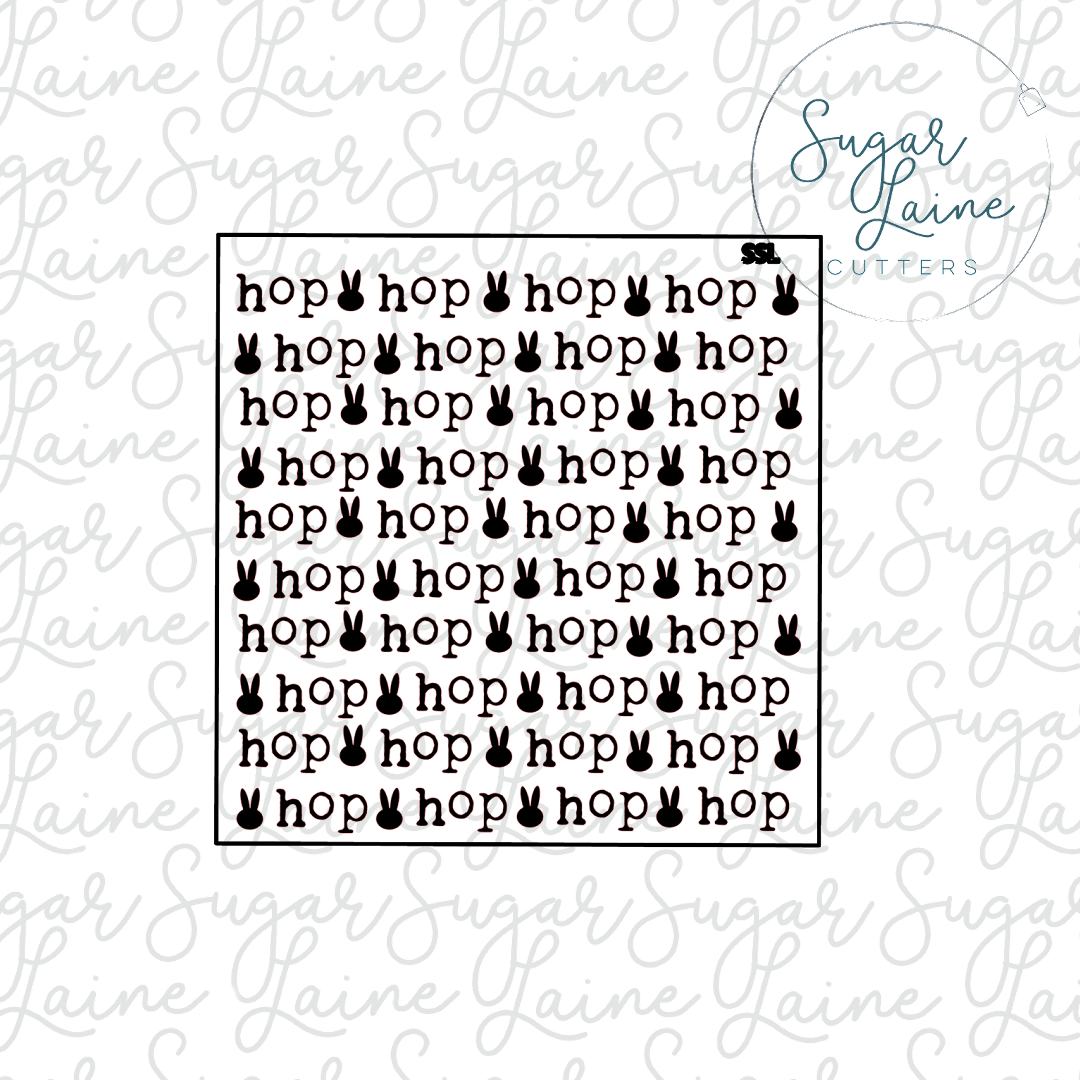 Sugar
Laine
CUTTERS
SSL
hop hop hop hop
hop hop hop hop
hop hop hop hop
hop hop hop hop
hop hop hop hop
hop hop hop hop
hop hop hop hop
hop hop hop hop
hop hop hop hop
hop hop hop hop